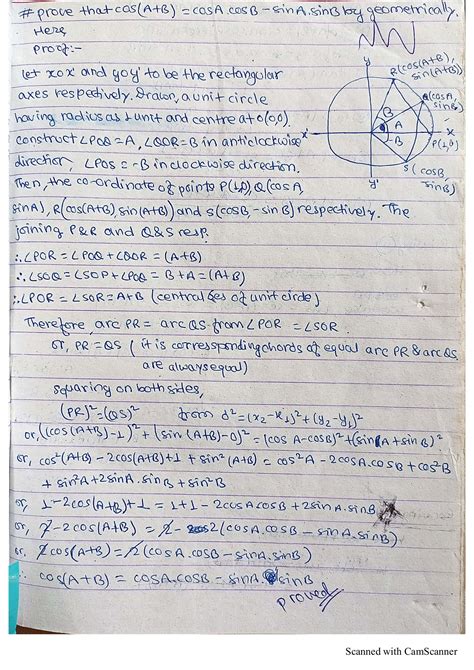 # prove that cos(A+B) = cosA.cosB - sinA.sinB by geometrically.
Here,
Proof:-
Let xox' and yoy' to be the rectangular
axes respectively. Drawn, a unit circle
having radius as 1 unit and centre at O(0,0).
construct ∠POQ = A, ∠QOR = B in anticlockwise
direction, ∠POS = -B in clockwise direction.
Then, the co-ordinate of points P(1,0), Q(cosA,
sinA), R(cos(A+B), sin(A+B)) and S(cosB, -sinB) respectively. The
joining P&R and Q&S resp.
∴∠POR = ∠POQ + ∠QOR = (A+B)
∴∠SOQ = ∠SOP + ∠POQ = B+A = (A+B)
∴∠POR = ∠SOR = A+B (central ∠es of unit circle)
Therefore, arc PR = arc QS from ∠POR = ∠SOR.
or, PR = QS ( it is corresponding chords of equal arc PR & arc QS,
are always equal)
squaring on both sides,
(PR)² = (QS)² from d² = (x₂-x₁)² + (y₂-y₁)²
or, (cos(A+B)-1)² + (sin(A+B)-0)² = (cosA-cosB)² + (sinA+sinB)²
or, cos²(A+B) - 2cos(A+B)+1 + sin²(A+B) = cos²A - 2cosA.cosB + cos²B
+ sin²A + 2sinA.sinB + sin²B
or, 1-2cos(A+B)+1 = 1+1-2cosA.cosB + 2sinA.sinB
or, 2-2cos(A+B) = 2-2(cosA.cosB - sinA.sinB)
or, 2cos(A+B) = 2(cosA.cosB - sinA.sinB)
∴ cos(A+B) = cosA.cosB - sinA.sinB
proved
y
R(cos(A+B),
sin(A+B))
Q(cosA,
sinA)
B
A
-B
x'
x
P(1,0)
S(cosB,
-sinB)
y'
Scanned with CamScanner